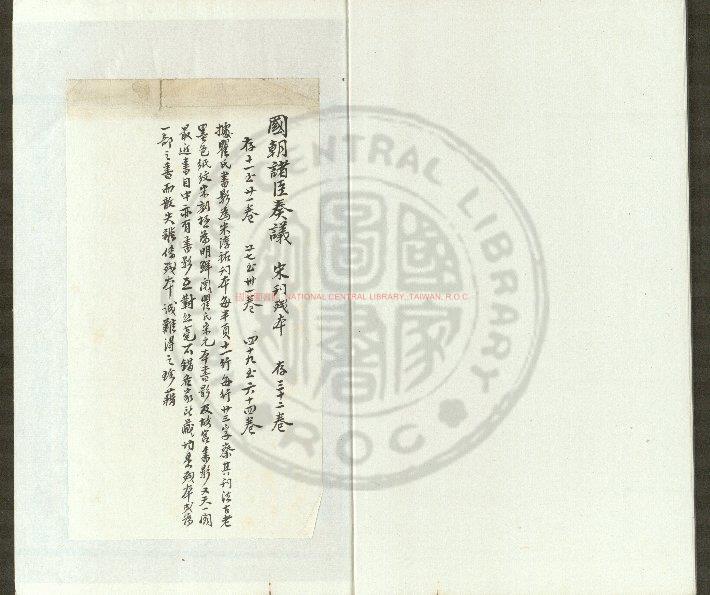 國朝諸臣奏議 宋刊殘本 存三十二卷
存十一至廿一卷 廿七至卅一卷 四十九至六十四卷
據瞿氏書影為宋淳祐刊本每半頁十一行每行廿三字察其刊法古老
墨色紙紋宋刻極為明鮮瞿氏宋元本書影及故宮書影又天一閣
最近書目中亦有書影互對之竟不錯各家所藏均是殘本或為
一部之書而散失雖係殘本誠難得之珍藉
國家圖書館, NATIONAL CENTRAL LIBRARY, TAIWAN, R.O.C
CENTRAL LIBRARY
R.O.C
國家圖書